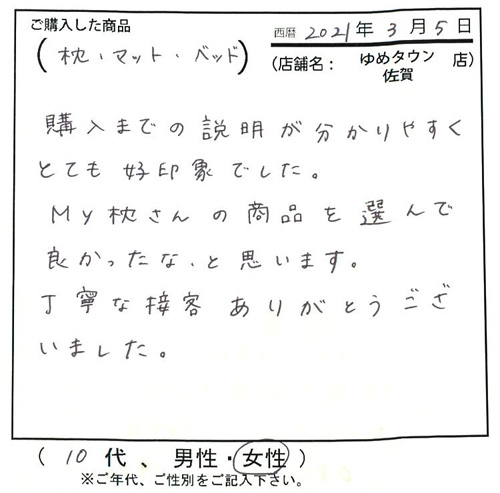 ご購入した商品
(枕・マット・ベッド)
西暦 2021年 3月 5日
(店舗名： ゆめタウン佐賀 店)
購入までの説明が分かりやすく
とても好印象でした。
My枕さんの商品を選んで
良かったな、と思います。
丁寧な接客ありがとうござ
いました。
( 10 代 、 男性・女性 )
※ご年代、ご性別をご記入下さい。